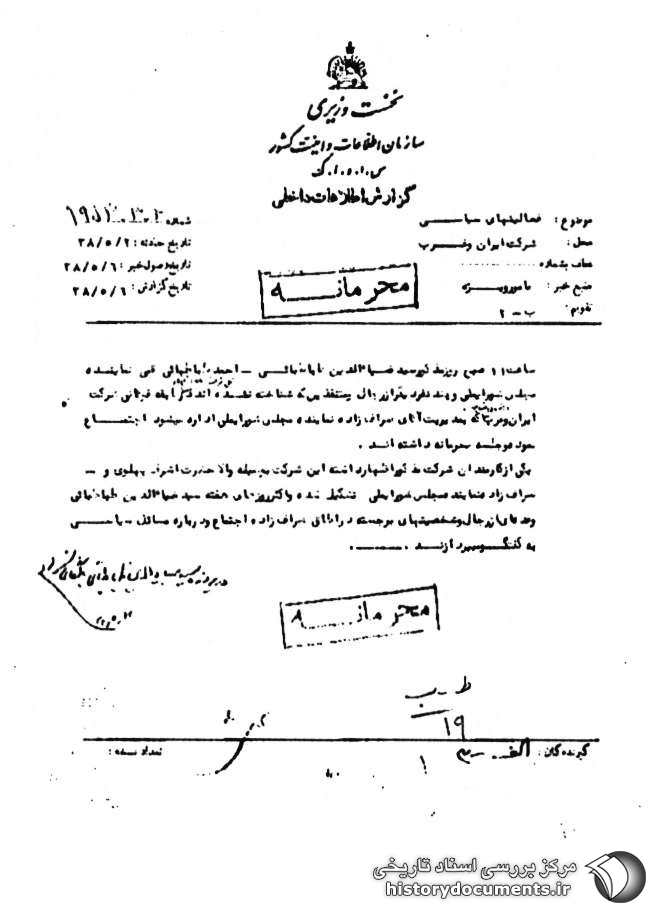 نخست وزیری
سازمان اطلاعات و امنیت کشور
س.ا.و.ا.ک
گزارش اطلاعات داخلی
موضوع : فعالیتهای سیاسی
شماره
محل : شرکت ایران و غرب
تاریخ حادثه : ۳۸/۵/۲
عطف بشماره
تاریخ وصول خبر : ۳۸/۵/۶
منبع خبر : مامور ویژه
تاریخ گزارش : ۳۸/۵/۶
تقویم : ب - ۲
محرمانه
ساعت ۱۱ صبح روز مذکور سید ضیاءالدین طباطبائی - احمد طباطبائی قمی نماینده
مجلس شورایملی و چند نفر دیگر از رجال متنفذین که شناخته نشده اند در شرکت
ایران و غرب که بمدیریت آقای صراف زاده نماینده مجلس شورایملی اداره میشود اجتماع
نموده و جلسه محرمانه داشته اند .
یکی از کارمندان شرکت مذکور اظهار داشته این شرکت بوسیله والاحضرت اشرف پهلوی و -
صراف زاده نماینده مجلس شورایملی تشکیل شده و اکثر روزهای هفته سید ضیاءالدین طباطبائی
وعده‌ای از رجال و شخصیتهای برجسته در اطاق صراف زاده اجتماع و درباره مسائل سیاسی
به گفتگو میپردازند .
محرمانه
ط - ب
۱۹
گیرندگان : الف - ۳
۱
تعداد نسخه :
مرکز بررسی اسناد تاریخی
historydocuments.ir